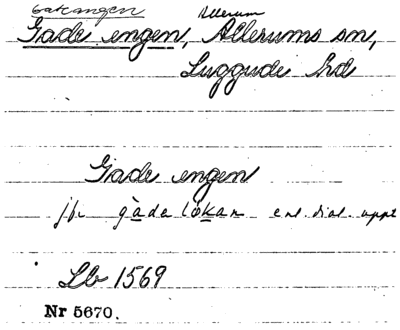 Gatängen Allerum
Gade engen, Allerums sn,
Luggude hd
Gade engen
jfr gàde lökan enl. dial. uppt
Lb 1569
Nr 5670.